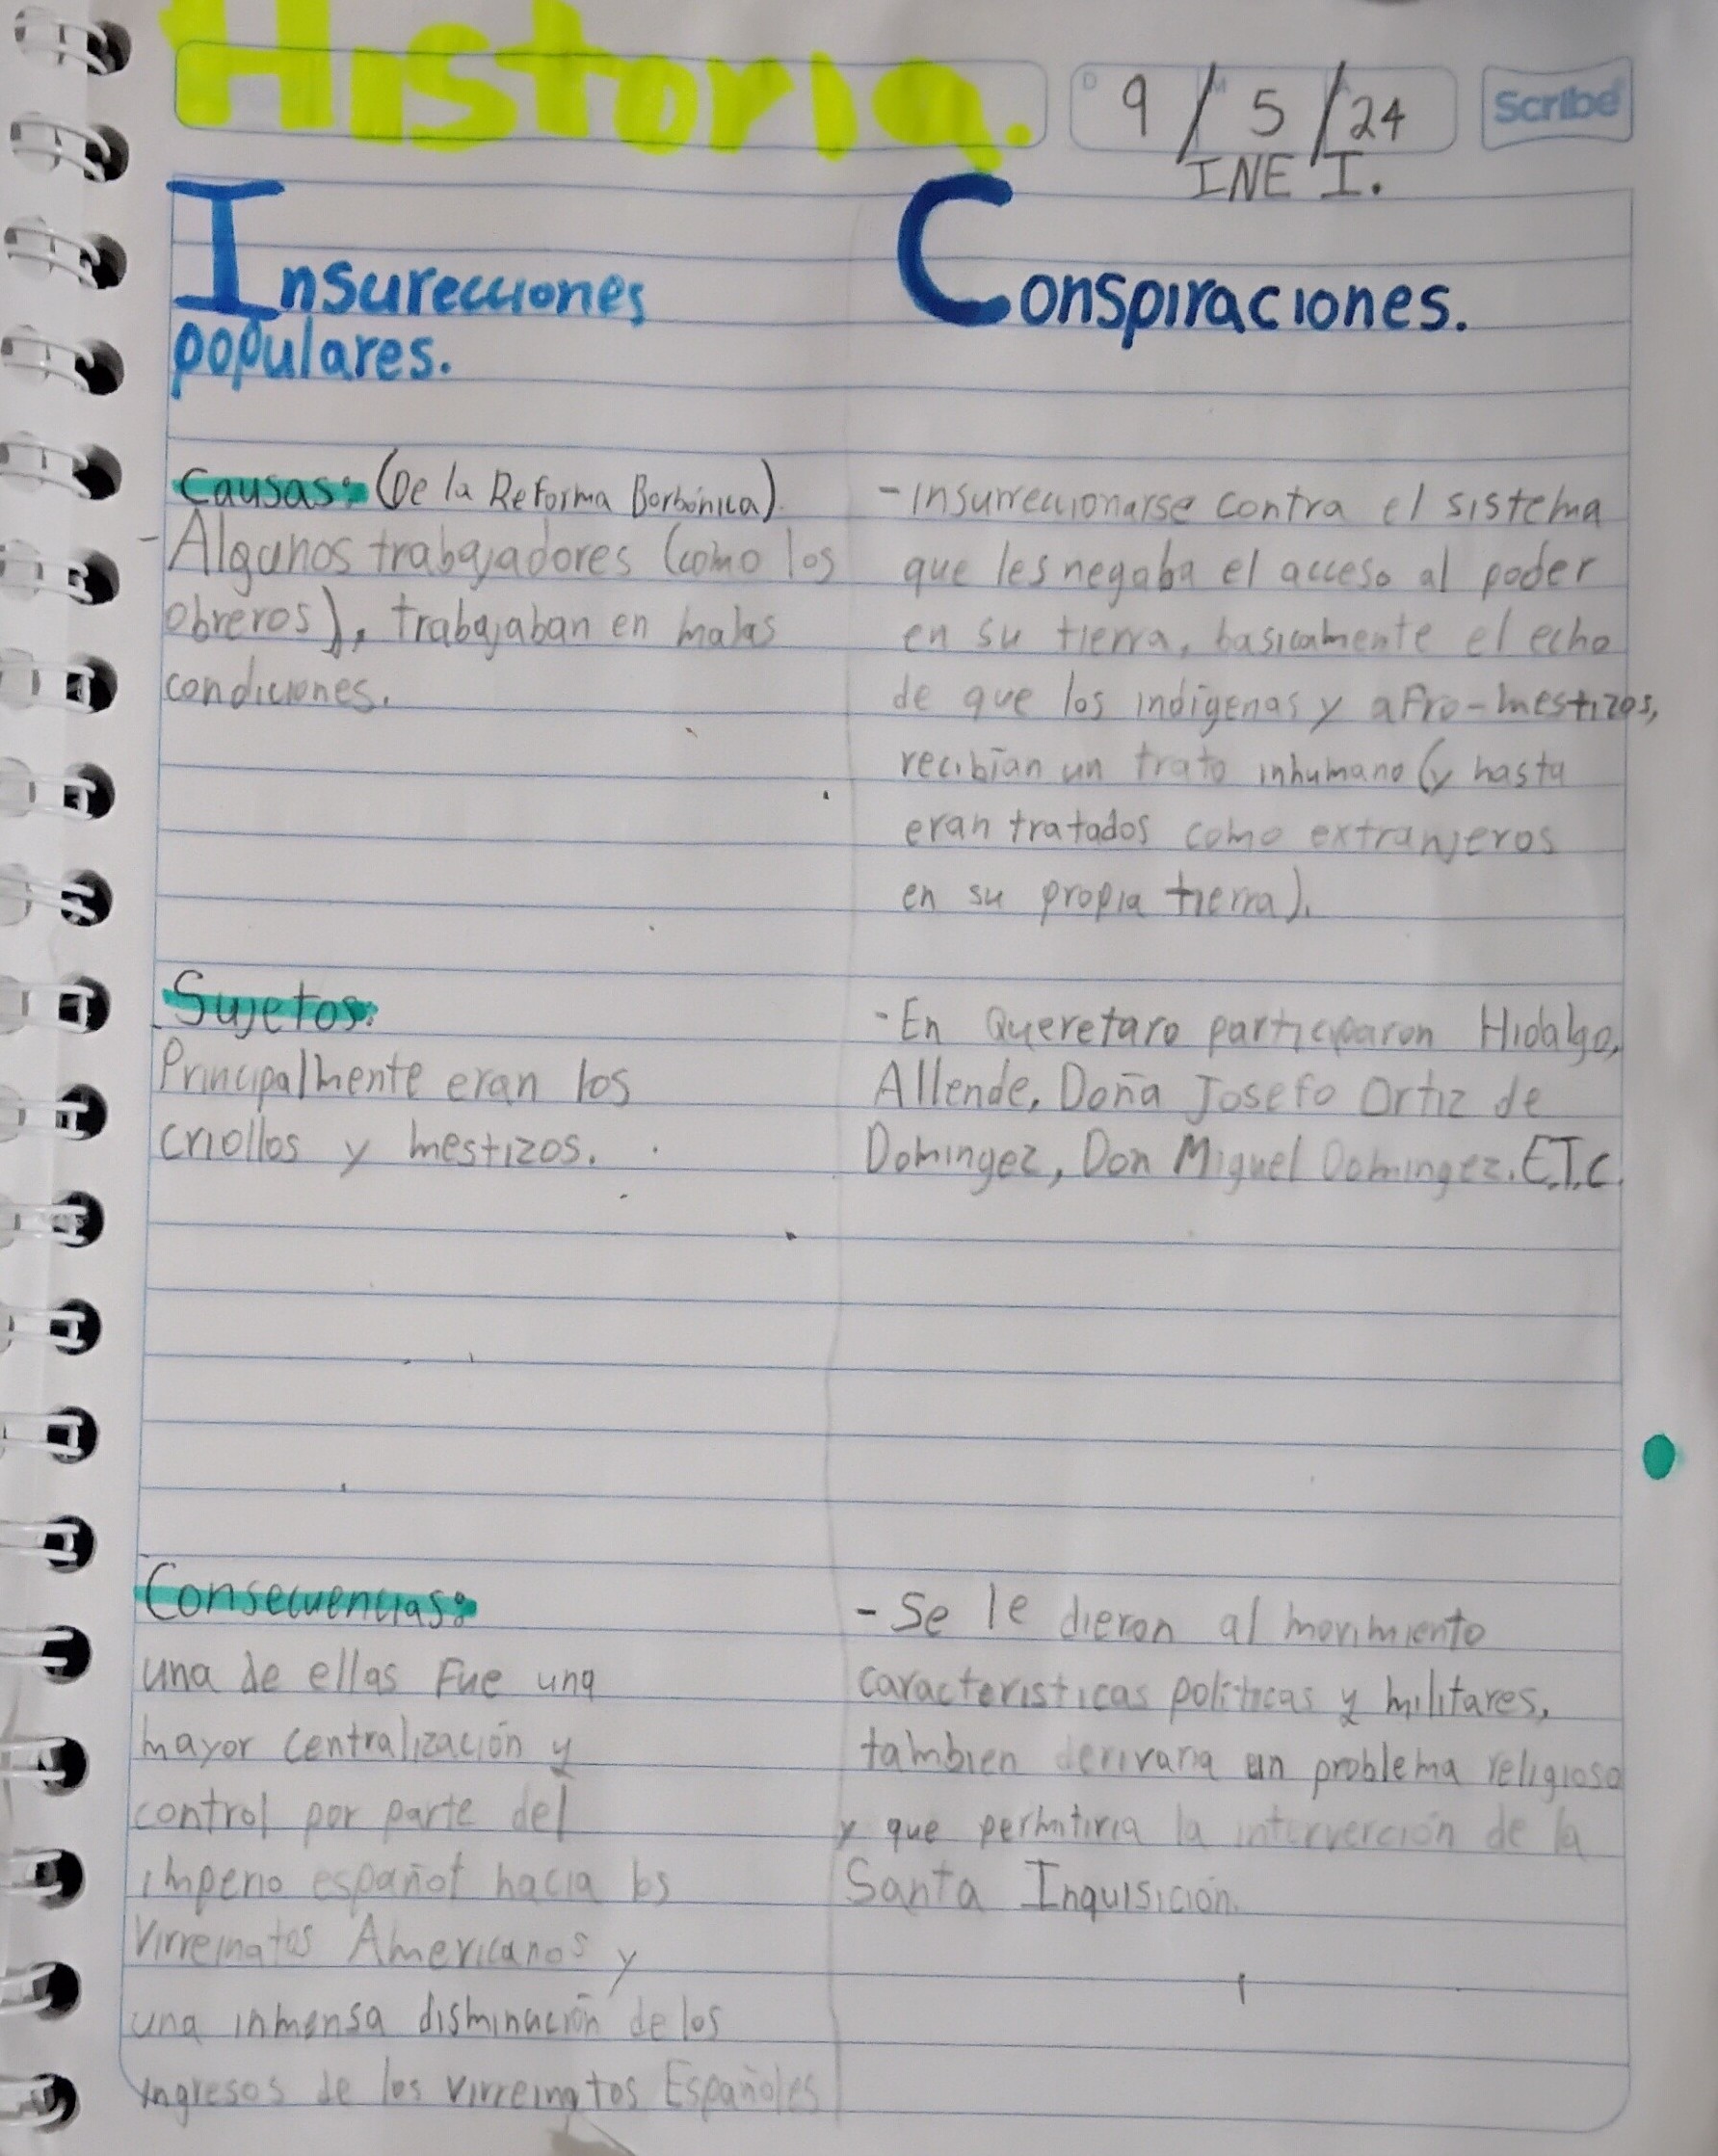 Historia.
9 / 5 / 24
Scribe
INE I.
Insurecciones
populares.
Causas: (De la Reforma Borbónica).
- Algunos trabajadores (como los
obreros), trabajaban en malas
condiciones.
Sujetos:
Principalmente eran los
criollos y mestizos.
Consecuencias:
una de ellas Fue una
mayor centralización y
control por parte del
imperio español hacia los
Virreinatos Americanos y
una inmensa disminución de los
ingresos de los virreinatos Españoles
Conspiraciones.
- insurreccionarse contra el sistema
que les negaba el acceso al poder
en su tierra, basicamente el echo
de que los indígenas y afro-mestizos,
recibían un trato inhumano (y hasta
eran tratados como extranjeros
en su propia tierra).
- En Queretaro participaron Hidalgo,
Allende, Doña Josefo Ortiz de
Domingez, Don Miguel Domingez. E.T.C.
- Se le dieron al movimiento
caracteristicas politicas y militares,
tambien derivaria un problema religioso
y que permitiria la interverción de la
Santa Inquisición.